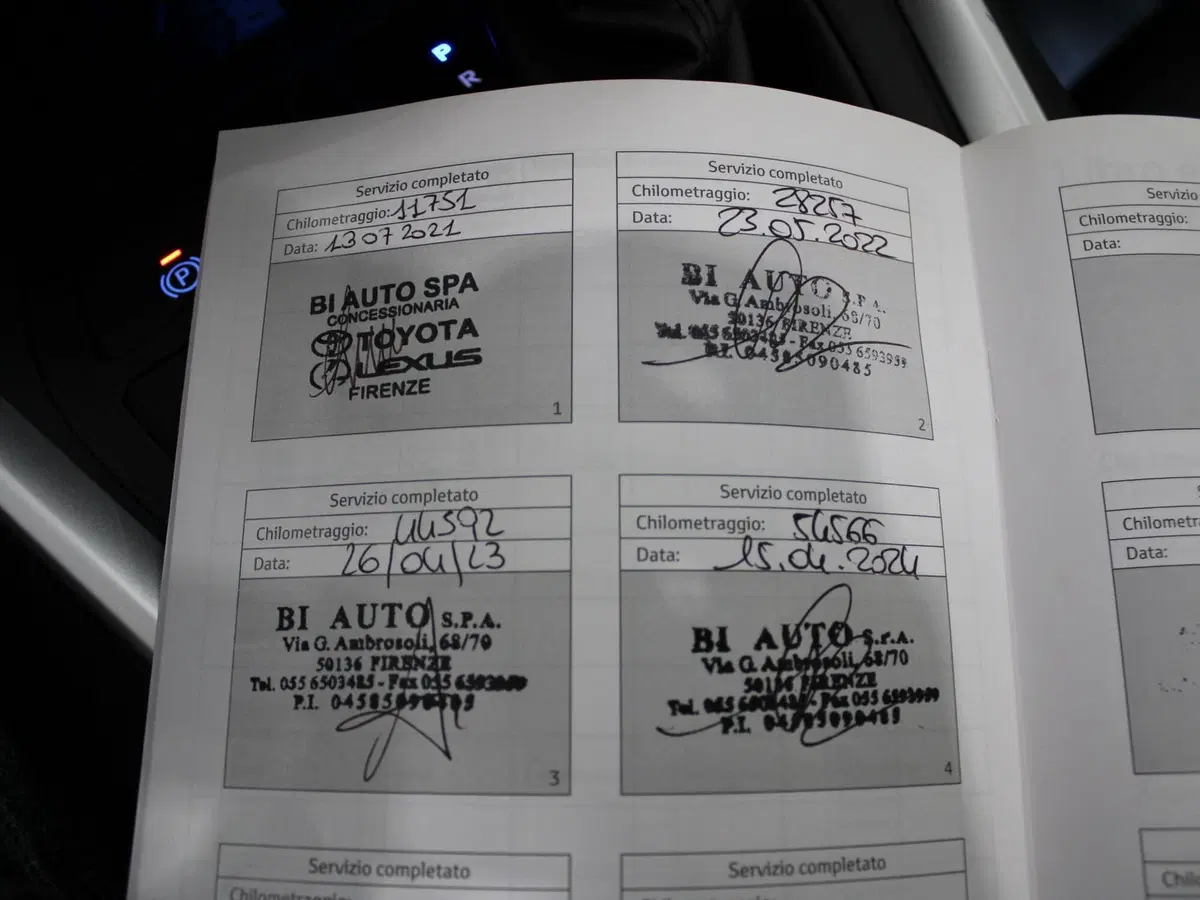 P
R
Servizio completato
Chilometraggio: 11751
Data: 13 07 2021
BI AUTO SPA
CONCESSIONARIA
TOYOTA
LEXUS
FIRENZE
1
Servizio completato
Chilometraggio: 28257
Data: 23.05.2022
BI AUTO S.P.A.
Via G. Ambrosoli, 68/70
50136 FIRENZE
Tel. 055 6503485 - Fax 055 6593959
P.I. 04585090485
2
Servizio completato
Chilometraggio: 44592
Data: 26/04/23
BI AUTO S.P.A.
Via G. Ambrosoli, 68/70
50136 FIRENZE
Tel. 055 6503485 - Fax 055
P.I.
3
Servizio completato
Chilometraggio: 54566
Data: 15.04.2024
BI AUTO S.P.A.
Via G. Ambrosoli, 68/70
50136 FIRENZE
Tel. 055 - Fax 055
P.I. 04585090485
4
Servizio completato
Servizio completato
Servizio
Chilometraggio:
Data:
Data:
P